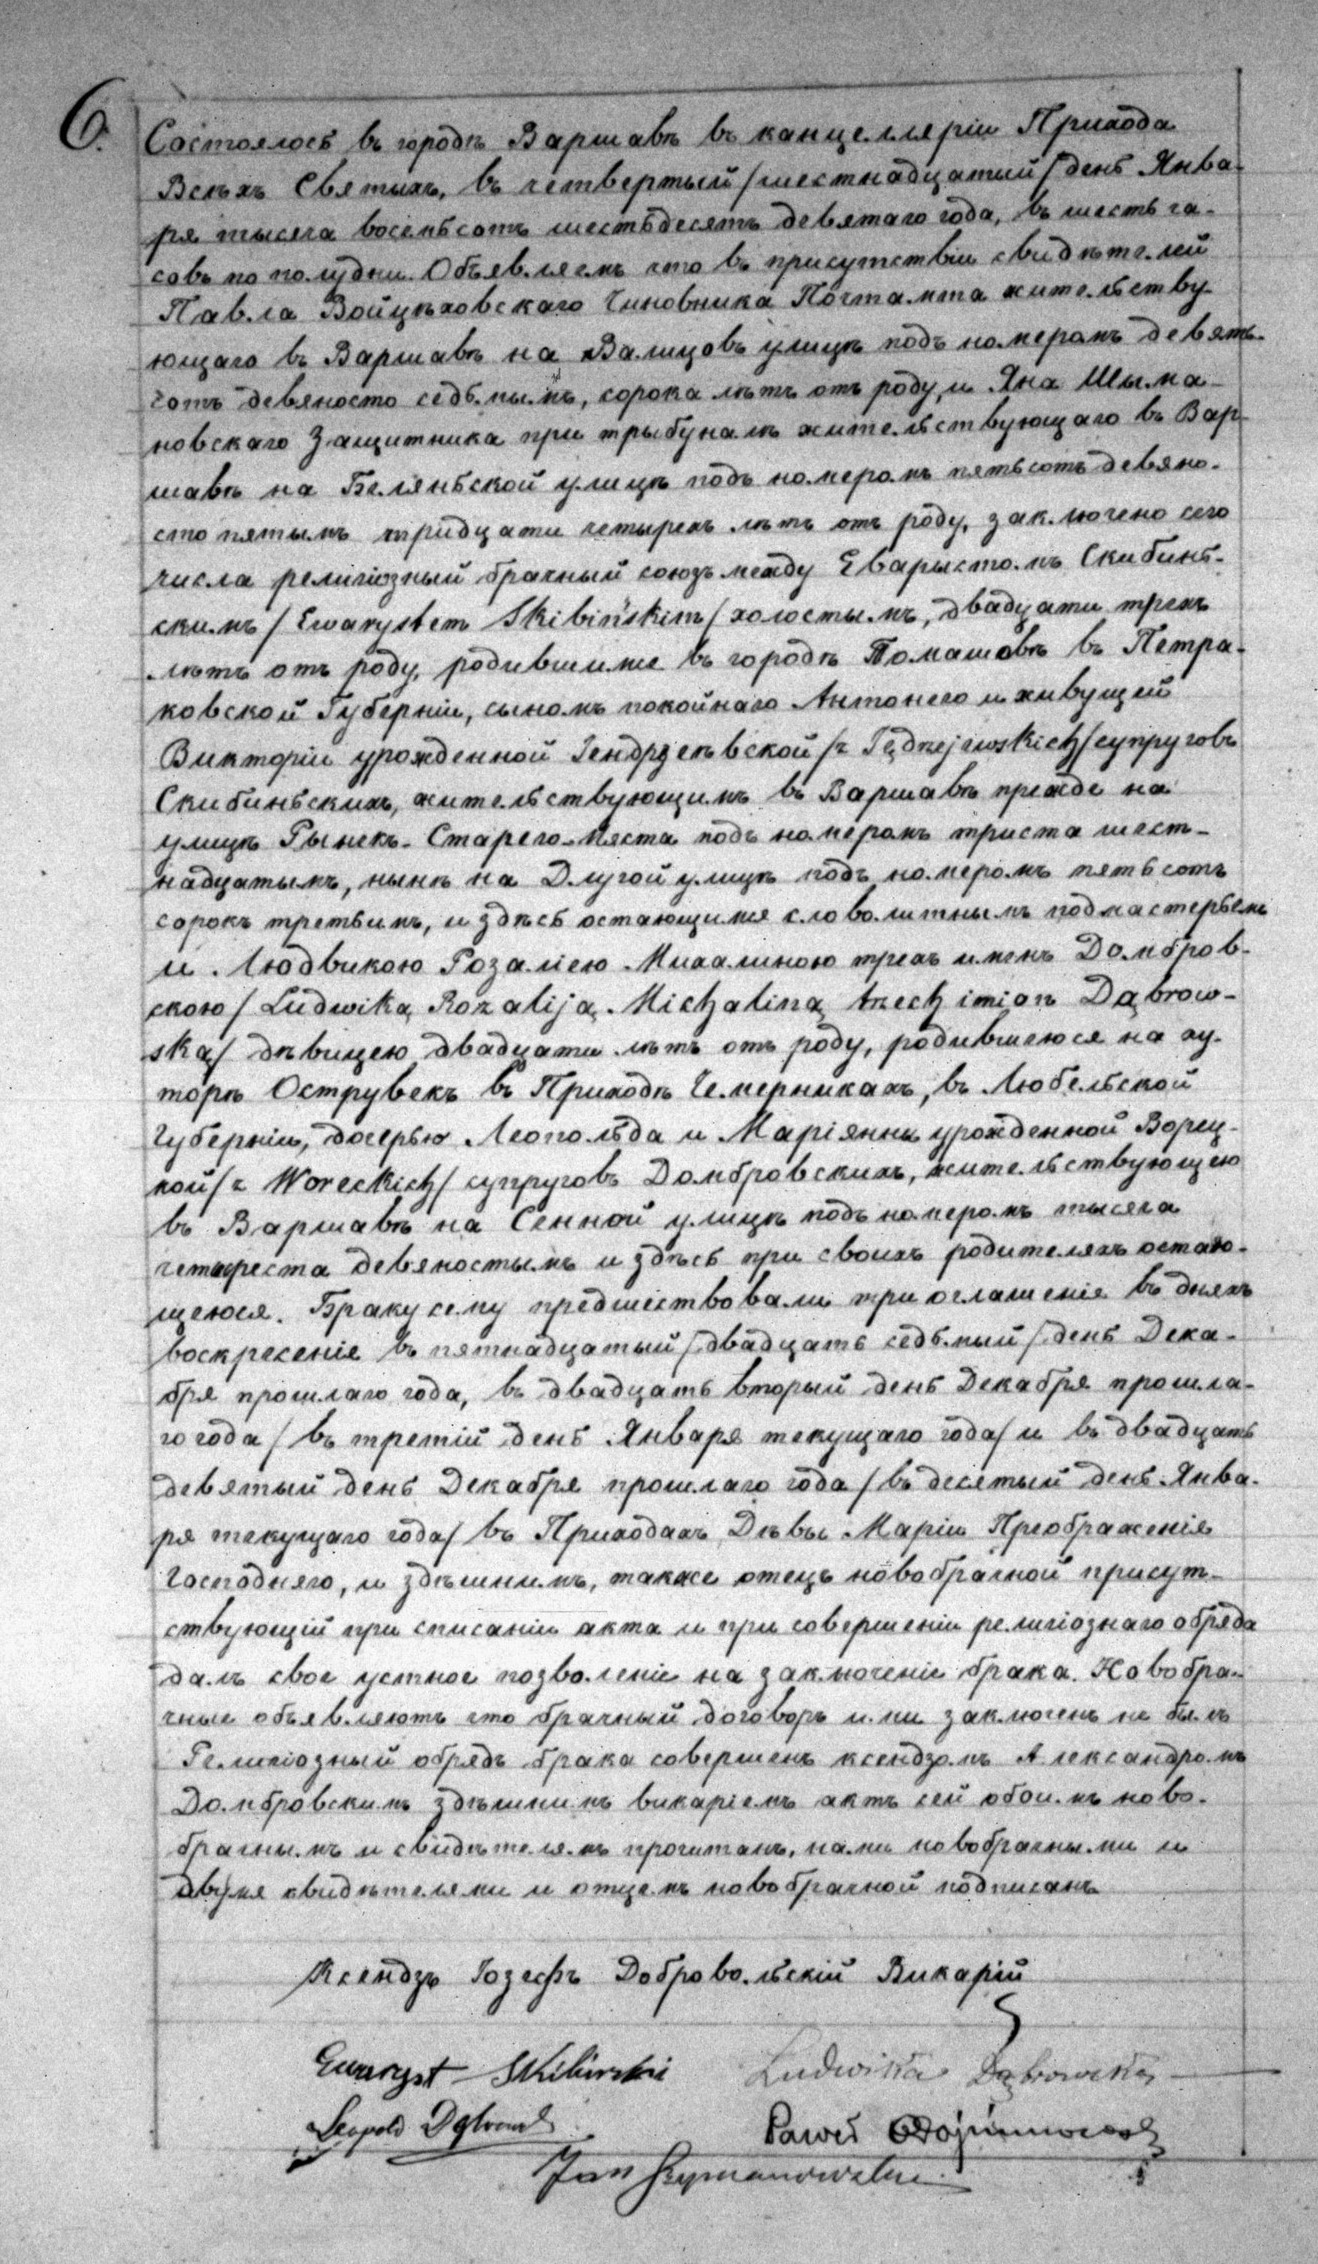 6.
Состоялось въ городѣ Варшавѣ въ канцелляріи Прихода
Всѣхъ Святыхъ, въ четвертый /шестнадцатый/ день Янва-
ря тысяча восемьсотъ шестьдесятъ девятаго года, въ шесть ча-
совъ по полудни. Объявляемъ что въ присутствіи свидѣтелей
Павла Войцѣховскаго Чиновника Почтамта жительству-
ющаго въ Варшавѣ на Валицовъ улицѣ подъ номеромъ девять-
сотъ девяносто седьмымъ, сорока лѣтъ отъ роду, и Яна Шыма-
новскаго Защитника при трыбуналѣ жительствующаго въ Вар-
шавѣ на Беляньской улицѣ подъ номеромъ пятьсотъ девяно-
сто пятымъ тридцати четырехъ лѣтъ отъ роду, заключено сего
числа религіозный брачный союзъ между Еварыстомъ Скибинь-
скимъ /Ewarystem Skibińskim/ холостымъ, двадцати трехъ
лѣтъ отъ роду, родившимся въ городѣ Томашовѣ въ Петра-
ковской Губерніи, сыномъ покойнаго Антонего и живущей
Викторіи урожденной Іендрзеевской /z Jędrzejewskich/ супруговъ
Скибиньскихъ, жительствующимъ въ Варшавѣ прежде на
улицѣ Рынекъ-Старего-Мяста подъ номеромъ триста шест-
надцатымъ, нынѣ на Длугой улицѣ подъ номеромъ пятьсотъ
сорокъ третьимъ, и здѣсь остающимся словолитнымъ подмастерьемъ
и Людвикою Розаліею Михалиною трехъ именъ Домбров-
скою /Ludwiką Rozaliją Michaliną trzech imion Dąbrow-
ską/ дѣвицею двадцати лѣтъ отъ роду, родившеюся на ху-
торѣ Острувекъ въ Приходѣ Чемерникахъ, въ Любельской
Губерніи, дочерью Леопольда и Маріянны урожденной Ворец-
кой /z Woreckich/ супруговъ Домбровскихъ, жительствующею
въ Варшавѣ на Сенной улицѣ подъ номеромъ тысяча
четыреста девяностымъ и здѣсь при своихъ родителяхъ остаю-
щеюся. Браку сему предшествовали три оглашенія въ дняхъ
воскресенія въ пятнадцатый /двадцать седьмый/ день Дека-
бря прошлаго года, въ двадцать вторый день Декабря прошла-
го года /въ третій день Января текущаго года/ и въ двадцать
девятый день Декабря прошлаго года /въ десятый день Янва-
ря текущаго года/ въ Приходахъ Дѣвы Маріи Преображенія
Господняго, и здѣшнимъ, также отецъ новобрачной присут-
ствующій при списаніи акта и при совершеніи религіознаго обряда
далъ свое устное позволеніе на заключеніе брака. Новобра-
чные объявляютъ что брачный договоръ ими заключенъ не былъ
Религіозный обрядъ брака совершенъ ксендзомъ Александромъ
Домбровскимъ здѣшнимъ викаріемъ актъ сей обоимъ ново-
брачнымъ и свидѣтелямъ прочитанъ, нами новобрачными и
двумя свидѣтелями и отцемъ новобрачной подписанъ
Ксендзъ Іозефъ Добровольскій Викарій
Ewaryst Skibiński Ludwika Dąbrowska
Leopold Dąbrowski Paweł
Jan Szymanowski